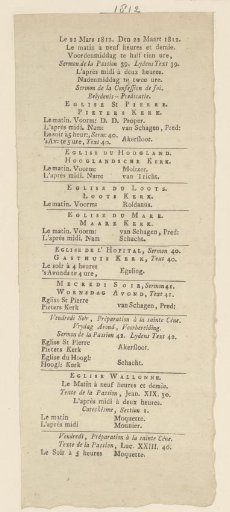 1812
Le 22 Mars 1812. Den 22 Maart 1812.
Le matin à neuf heures et demie.
Voordenmiddag te half tien ure,
Sermon de la Passion 39. Lydens Text 39.
L'après midi à deux heures.
Nadenmiddag te twee ure.
Sermon de la Confession de foi.
Belydenis-Predicatie.
EGLISE ST PIERRE.
PIETERS KERK.
Le matin. Voorm: D. D. Proper.
L'après midi. Nam: van Schagen, Pred:
Le soir à 5 heur, Serm. 40.
'sAv: te 5 ure, Text 40. Akersloot.
EGLISE DU HOOGLAND.
HOOGLANDSCHE KERK.
Le matin. Voorm: Moltzer.
L'après midi. Nam: van Tricht.
EGLISE DU LOOTS.
LOOTS KERK.
Le matin. Voorm: Roldanus.
EGLISE DU MARE.
MAARE KERK.
Le matin. Voorm: van Schagen, Pred:
L'après midi. Nam: Schacht.
EGLISE DE L'HOPITAL, Sermon 40.
GASTHUIS KERK, Text 40.
Le soir à 4 heures
'sAvonds te 4 ure, Egeling.
MECREDI SOIR, Sermon 41.
WOENSDAG AVOND, Text 41.
Eglise St Pierre
Pieters Kerk van Schagen, Pred:
Vendredi Soir, Préparation à la sainte Cène.
Vrydag Avond, Voorbereiding.
Sermon de la Passion 42. Lydens Text 42.
Eglise St Pierre
Pieters Kerk Akersloot.
Eglise du Hoogl:
Hoogl: Kerk Schacht.
EGLISE WALLONNE.
Le Matin à neuf heures et demie.
Texte de la Passion, Jean. XIX. 30.
L'après midi à deux heures.
Catechisme, Section 1.
Le matin Moquette.
L'après midi Mounier.
Vendredi, Préparation à la sainte Cène.
Texte de la Passion, Luc. XXIII. 46.
Le Soir à 5 heures Moquette.